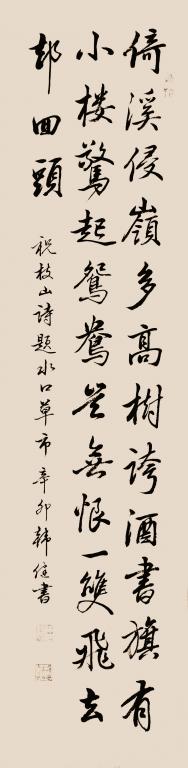 倚溪侵嶺多高樹誇酒書旗有
小楼驚起鴛鴦豈無恨一雙飛去
却回頭
祝枝山詩題水口草市辛卯韓書